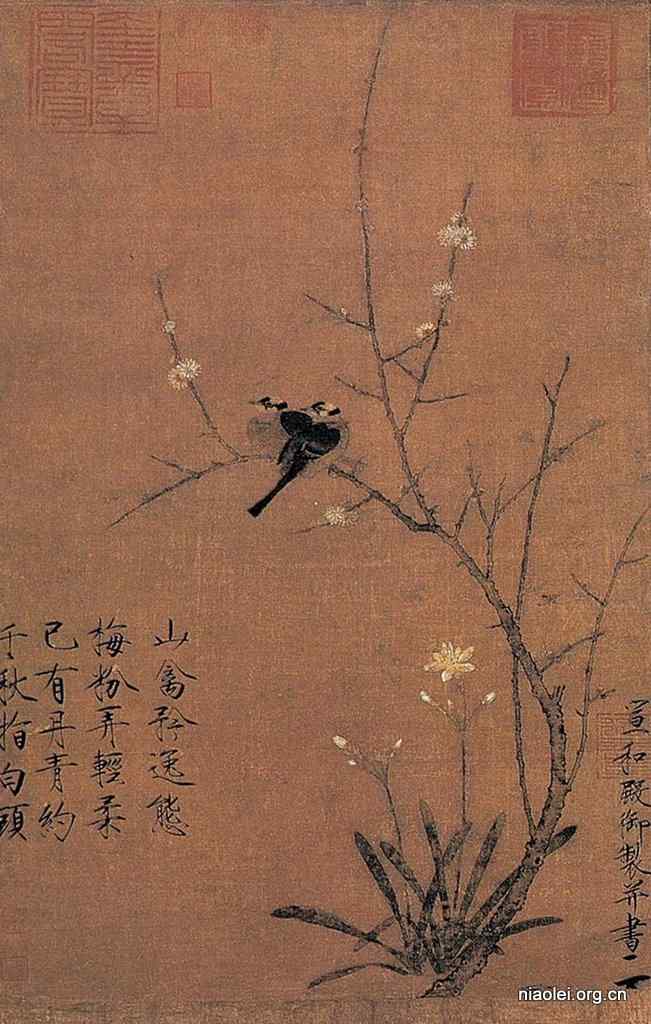 山禽矜逸態
梅粉弄輕柔
已有丹青約
千秋指白頭
宣和殿御製并書
niaolei.org.cn